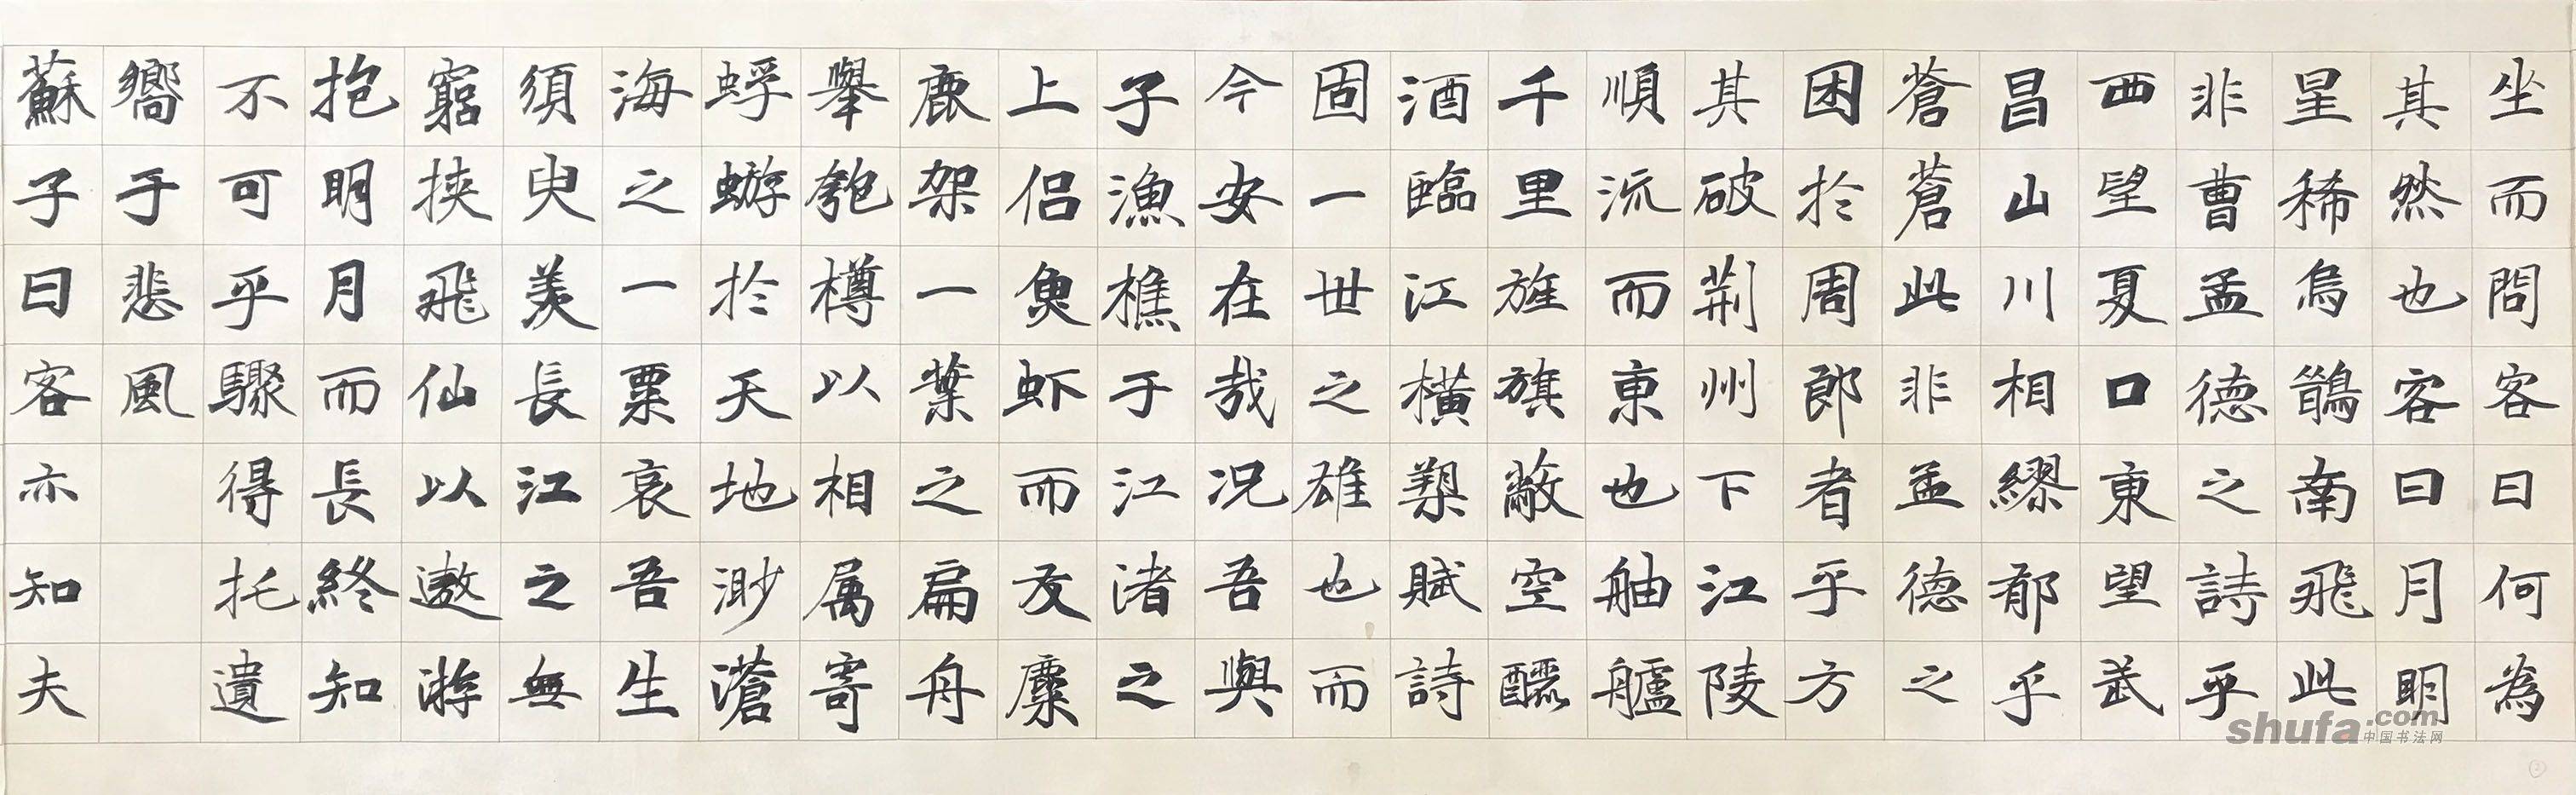 坐而問客曰何為
其然也客曰月明
星稀烏鵲南飛此
非曹孟德之詩乎
西望夏口東望武
昌山川相繆郁乎
蒼蒼此非孟德之
困於周郎者乎方
其破荆州下江陵
順流而東也舳艫
千里旌旗蔽空釃
酒臨江橫槊賦詩
固一世之雄也而
今安在哉况吾與
子漁樵于江渚之
上侣魚虾而友麋
鹿架一葉之扁舟
舉匏樽以相属寄
蜉蝣於天地渺滄
海之一粟哀吾生
須臾羡長江之無
窮挾飛仙以遨游
抱明月而長終知
不可乎驟得托遺
嚮于悲風
蘇子曰客亦知夫
shufa.com
中国书法网